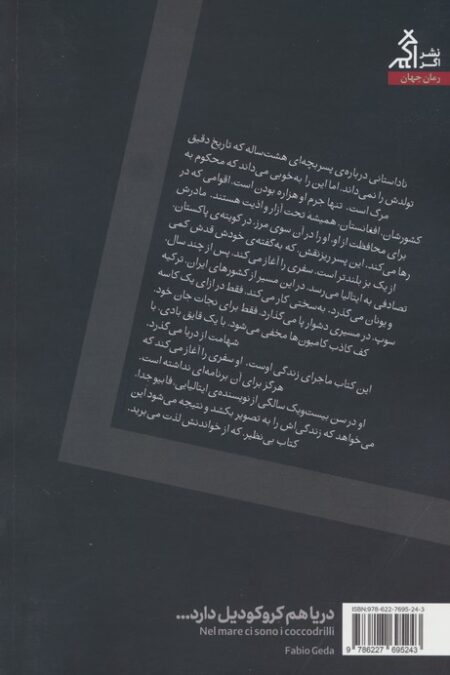 نشر
اگر
رمان جهان
ناداستانی درباره‌ی پسربچه‌ای هشت‌ساله که تاریخ دقیق
تولدش را نمی‌داند. اما این را به‌خوبی می‌داند که محکوم به
مرگ است. تنها جرم او هزاره بودن است، اقوامی که در
کشورشان، افغانستان، همیشه تحت آزار و اذیت هستند. مادرش
برای محافظت از او، او را در آن سوی مرز، در کویته‌ی پاکستان،
رها می‌کند. این پسر ریزنقش، که به‌گفته‌ی خودش قدش کمی
از یک بز بلندتر است، سفری را آغاز می‌کند. پس از چند سال،
تصادفی به ایتالیا می‌رسد. در این مسیر از کشورهای ایران، ترکیه
و یونان می‌گذرد. به‌سختی کار می‌کند، فقط در ازای یک کاسه
سوپ، در مسیری دشوار پا می‌گذارد، فقط برای نجات جان خود.
کف کاذب کامیون‌ها مخفی می‌شود. با یک قایق بادی، با
شهامت از دریا می‌گذرد.
این کتاب ماجرای زندگی اوست. او سفری را آغاز می‌کند که
هرگز برای آن برنامه‌ای نداشته است.
او در سن بیست‌ویک سالگی از نویسنده‌ی ایتالیایی فابیو جدا،
می‌خواهد که زندگی‌اش را به تصویر بکشد و نتیجه می‌شود این
کتاب بی‌نظیر، که از خواندنش لذت می‌برید.
دریا هم کروکودیل دارد...
Nel mare ci sono i coccodrilli
Fabio Geda
ISBN:978-622-7695-24-3
9 786227 695243